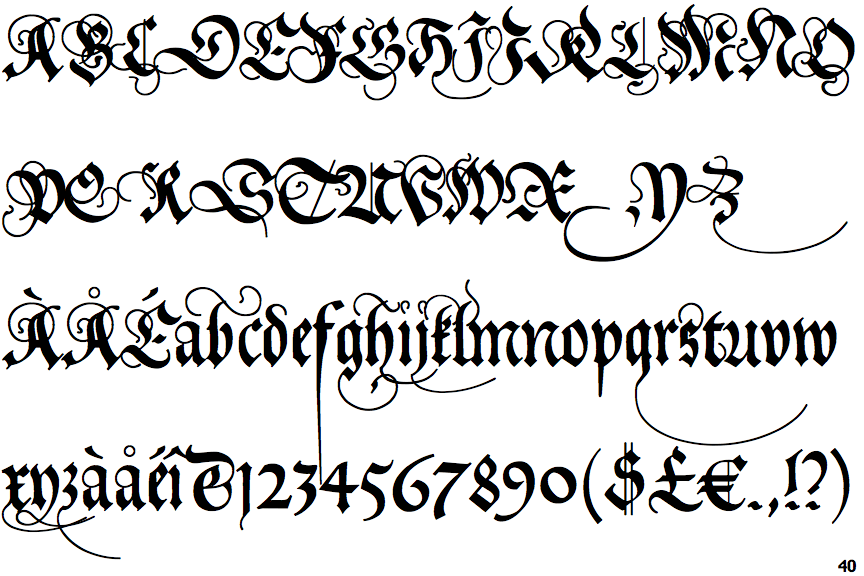 ABCDEFGHIJKLMNO
PQRSTUVWXYZ
ÀÅÉabcdefghijklmnopqrstuvw
xyzàåéî&1234567890($£€.,!?)
40